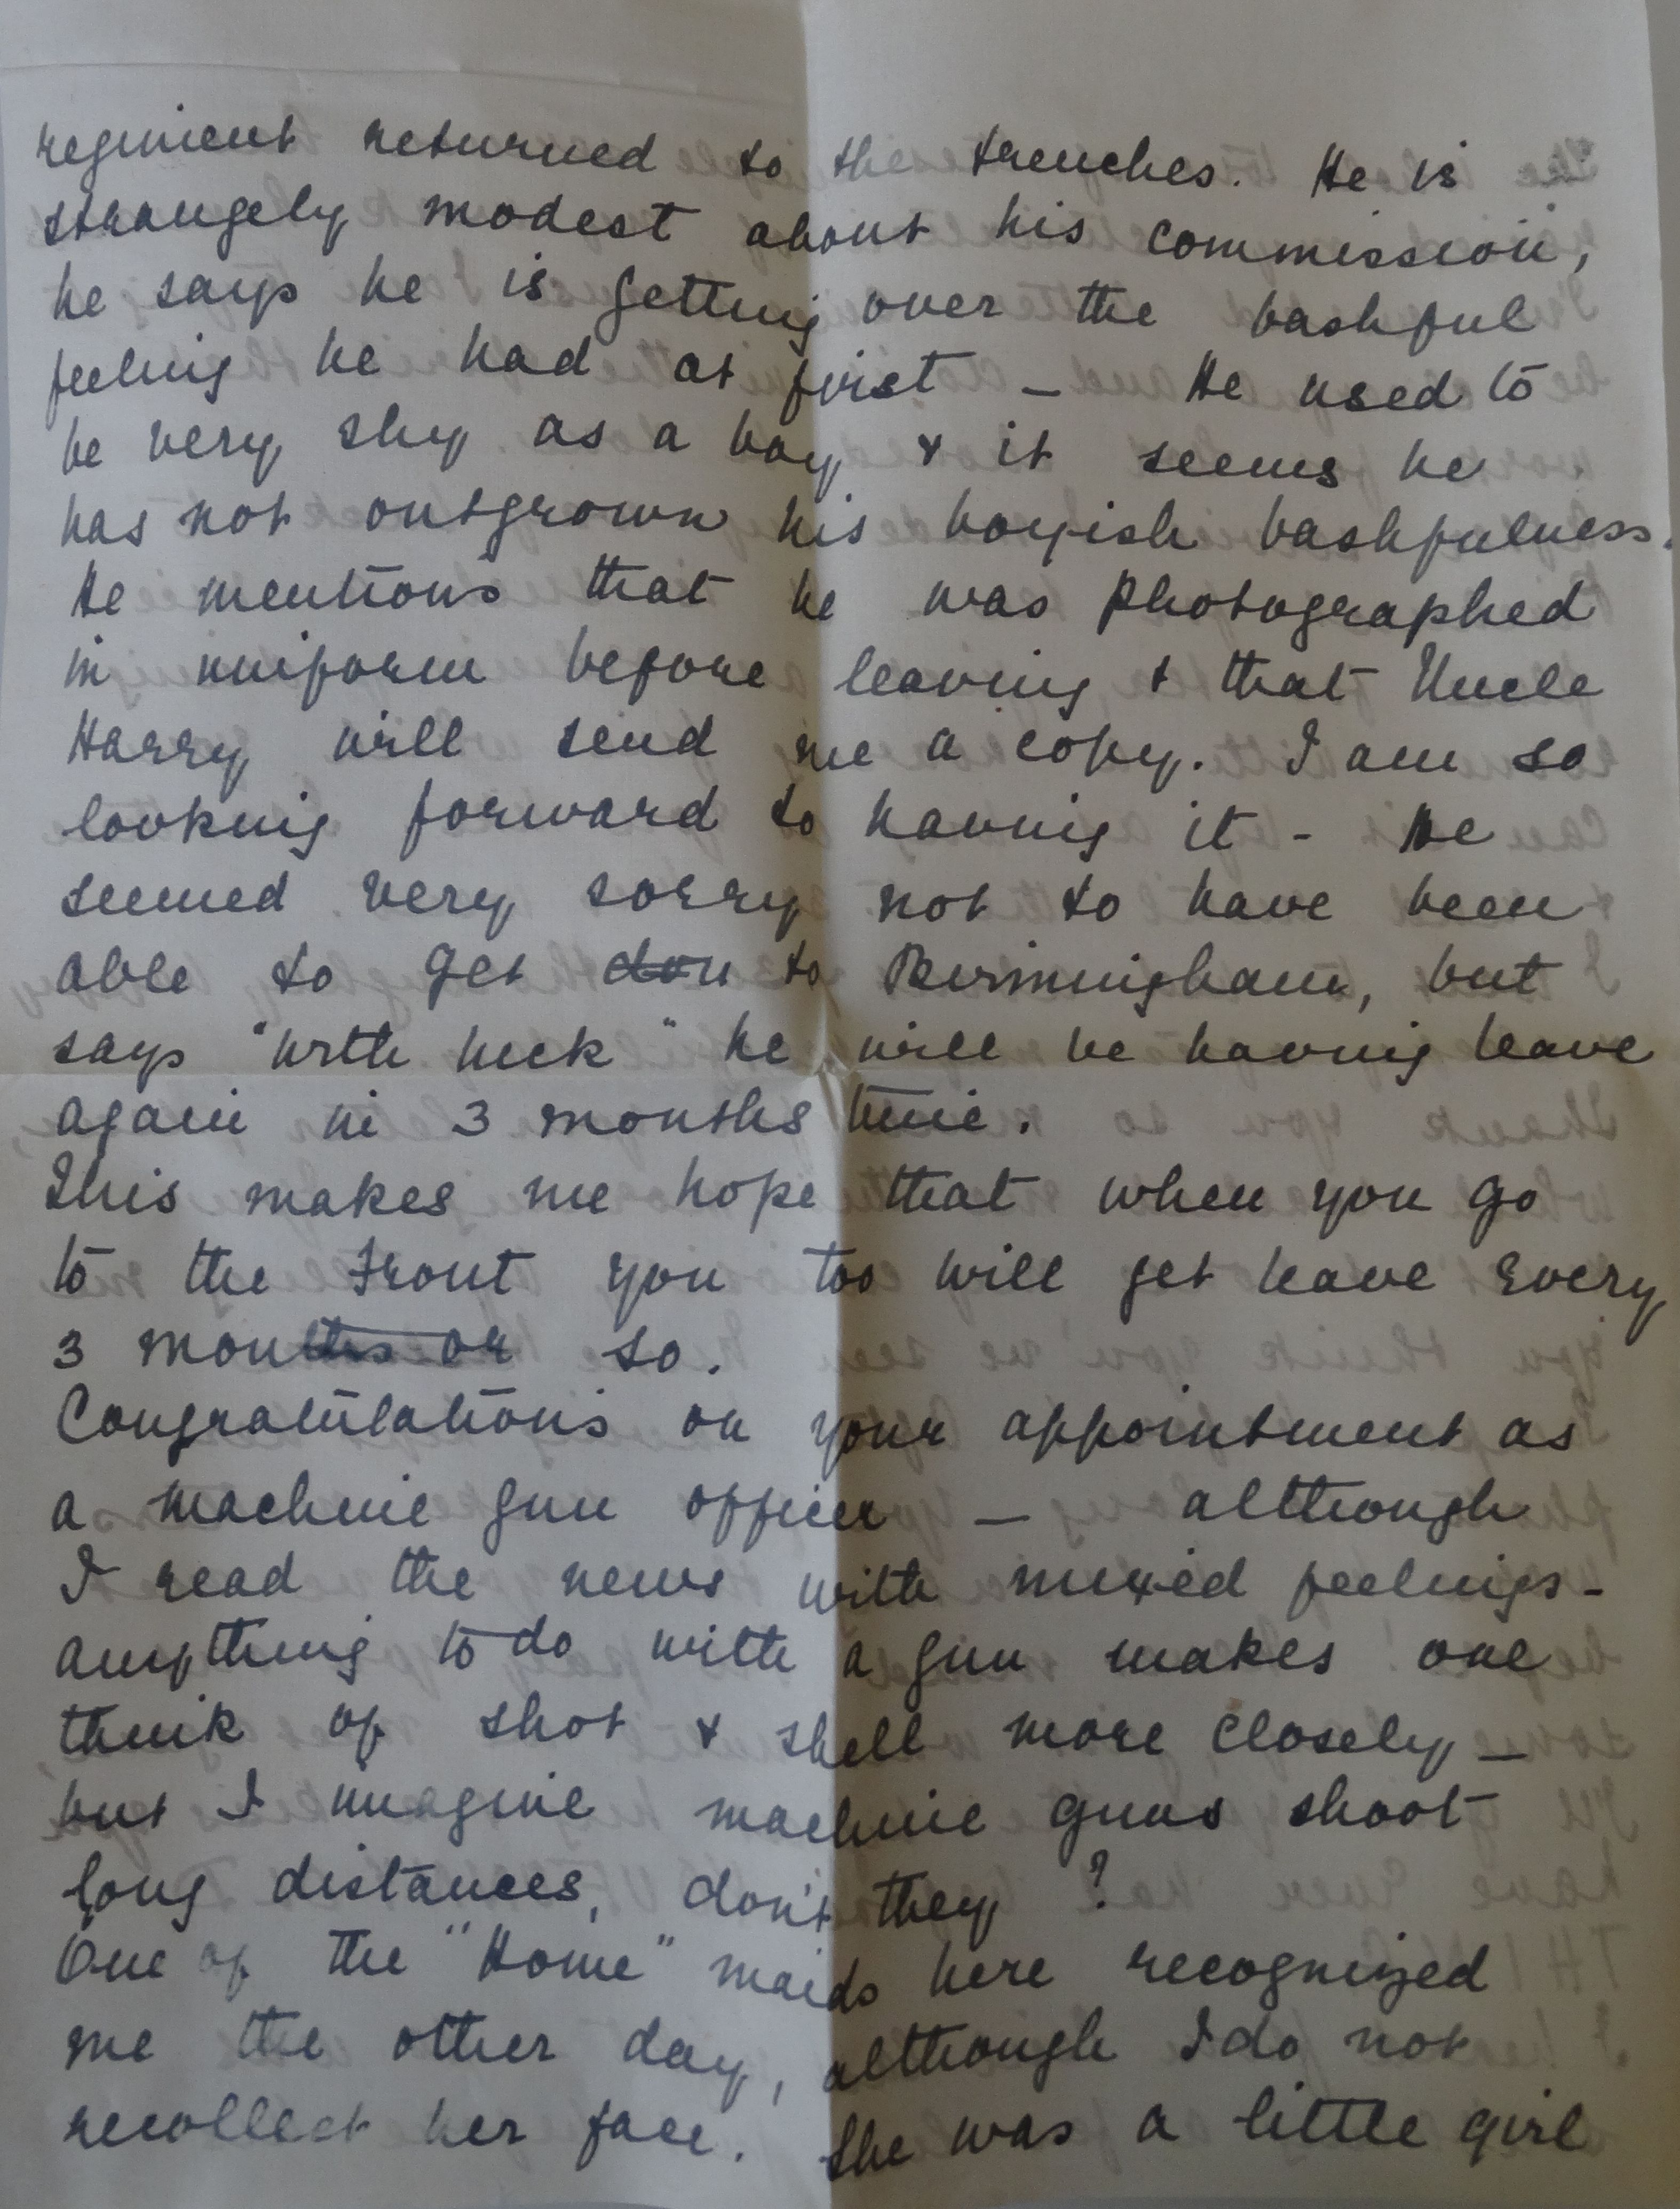 regiment returned to the trenches. He is
strangely modest about his commission,
he says he is getting over the bashful
feeling he had at first – He used to
be very shy as a boy & it seems he
has not outgrown his boyish bashfulness.
He mentions that he was photographed
in uniform before leaving & that Uncle
Harry will send me a copy. I am so
looking forward to having it - He
seemed very sorry not to have been
able to get to Birmingham, but
says "with luck" he will be having leave
again in 3 months time.
This makes me hope that when you go
to the Front you too will get leave every
3 months or so.
Congratulations on your appointment as
a machine gun officer – although
I read the news with mixed feelings -
anything to do with a gun makes one
think of shot & shell more closely –
but I imagine machine guns shoot
long distances, don't they?
One of the "Home" maids here recognized
me the other day, although I do not
recollect her face. She was a little girl